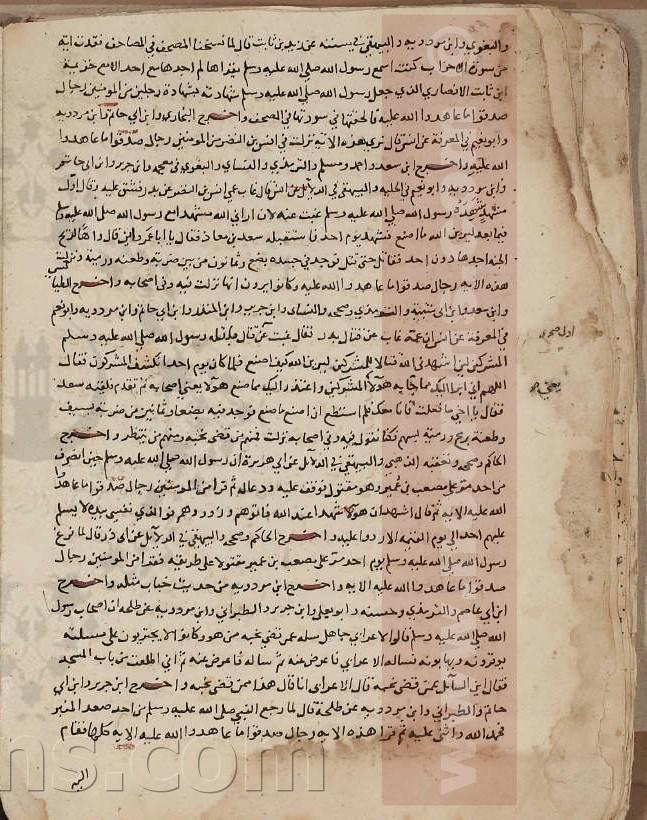 والبغوي وابن مردويه والبيهقي في سننه عن زيد بن ثابت قال لما نسخنا المصحف في المصاحف فقدت اية
من سورة الاحزاب كنت اسمع رسول الله صلى الله عليه وسلم يقراها لم اجدها مع احد الا مع خزيمة
ابن ثابت الانصاري الذي جعل رسول الله صلى الله عليه وسلم شهادته بشهادة رجلين من المومنين رجال
صدقوا ما عاهدوا الله عليه فالحقتها في سورتها في المصحف واخرج البخاري وابن ابي حاتم وابن مردويه
وابو نعيم في المعرفة عن انس قال نرى هذه الاية نزلت في انس بن النضر من المومنين رجال صدقوا ما عاهدوا
الله عليه واخرج ابن سعد واحمد ومسلم والترمذي والنساي والبغوي في معجمه وابن جرير وابن ابي حاتم
وابن مردويه وابو نعيم في الحلية والبيهقي في الدلايل عن انس قال غاب عمي انس بن النضر عن بدر فشق عليه وقال اول
مشهد شهده رسول الله صلى الله عليه وسلم غبت عنه لان اراني الله مشهدا مع رسول الله صلى الله عليه وسلم
فيما بعد ليرين الله ما اصنع فشهد يوم احد فاستقبله سعد بن معاذ فقال يا ابا عمرو اين قال واها لريح
الجنة اجدها دون احد فقاتل حتى قتل فوجد في جسده بضع وثمانون من بين ضربة وطعنة ورمية ونزلت
هذه الاية رجال صدقوا ما عاهدوا الله عليه وكانوا يرون انها نزلت فيه وفي اصحابه واخرج الطيالسي
وابن سعد وابن ابي شيبة والترمذي وصححه والنساي وابن جرير وابن المنذر وابن ابي حاتم وابن مردويه وابو نعيم
في المعرفة عن انس ان عمه غاب عن قتال بدر فقال غبت عن قتال قاتله رسول الله صلى الله عليه وسلم
المشركين لين اشهدني الله قتالا للمشركين ليرين الله كيف اصنع فلما كان يوم احد انكشف المشركون فقال
اللهم اني ابرا اليك مما جا به هولا المشركين واعتذر اليك مما صنع هولا يعني اصحابه ثم تقدم فلقيه سعد
فقال يا اخي ما فعلت فانا معك فلم استطع ان اصنع ما صنع فوجد فيه بضعا وثمانين من ضربة بسيف
وطعنة برمح ورمية بسهم فكنا نقول فيه وفي اصحابه نزلت فمنهم من قضى نحبه ومنهم من ينتظر واخرج
الحاكم وصححه وتعقبه الذهبي والبيهقي في الدلايل عن ابي هريرة ان رسول الله صلى الله عليه وسلم حين انصرف
من احد مر على مصعب بن عمير وهو مقتول فوقف عليه ودعا له ثم قرا من المومنين رجال صدقوا ما عاهدوا
الله عليه الاية ثم قال اشهد ان هولا شهدا عند الله فاتوهم وزوروهم فوالذي نفسي بيده لا يسلم
عليهم احد الى يوم القيمة الا ردوا عليه واخرج الحاكم وصححه والبيهقي في الدلايل عن ابي ذر قال لما فرغ
رسول الله صلى الله عليه وسلم يوم احد مر على مصعب بن عمير مقتولا على طريقه فقرا من المومنين رجال
صدقوا ما عاهدوا الله عليه الاية واخرج ابن مردويه من حديث خباب مثله واخرج
ابن ابي عاصم والترمذي وحسنه وابو يعلى وابن جرير والطبراني وابن مردويه عن طلحة ان اصحاب رسول
الله صلى الله عليه وسلم قالوا لاعرابي جاهل سله عمن قضى نحبه من هو وكانوا لا يجتريون على مسئلته
يوقرونه ويهابونه فساله الاعرابي فاعرض عنه ثم ساله فاعرض عنه ثم اني اطلعت من باب المسجد
فقال اين السايل عمن قضى نحبه قال الاعرابي انا قال هذا ممن قضى نحبه واخرج ابن جرير وابن ابي
حاتم والطبراني وابن مردويه عن طلحة قال لما رجع النبي صلى الله عليه وسلم من احد صعد المنبر
فحمد الله واثنى عليه ثم قرا هذه الاية رجال صدقوا ما عاهدوا الله عليه الاية كلها فقام
اليه
ns.com